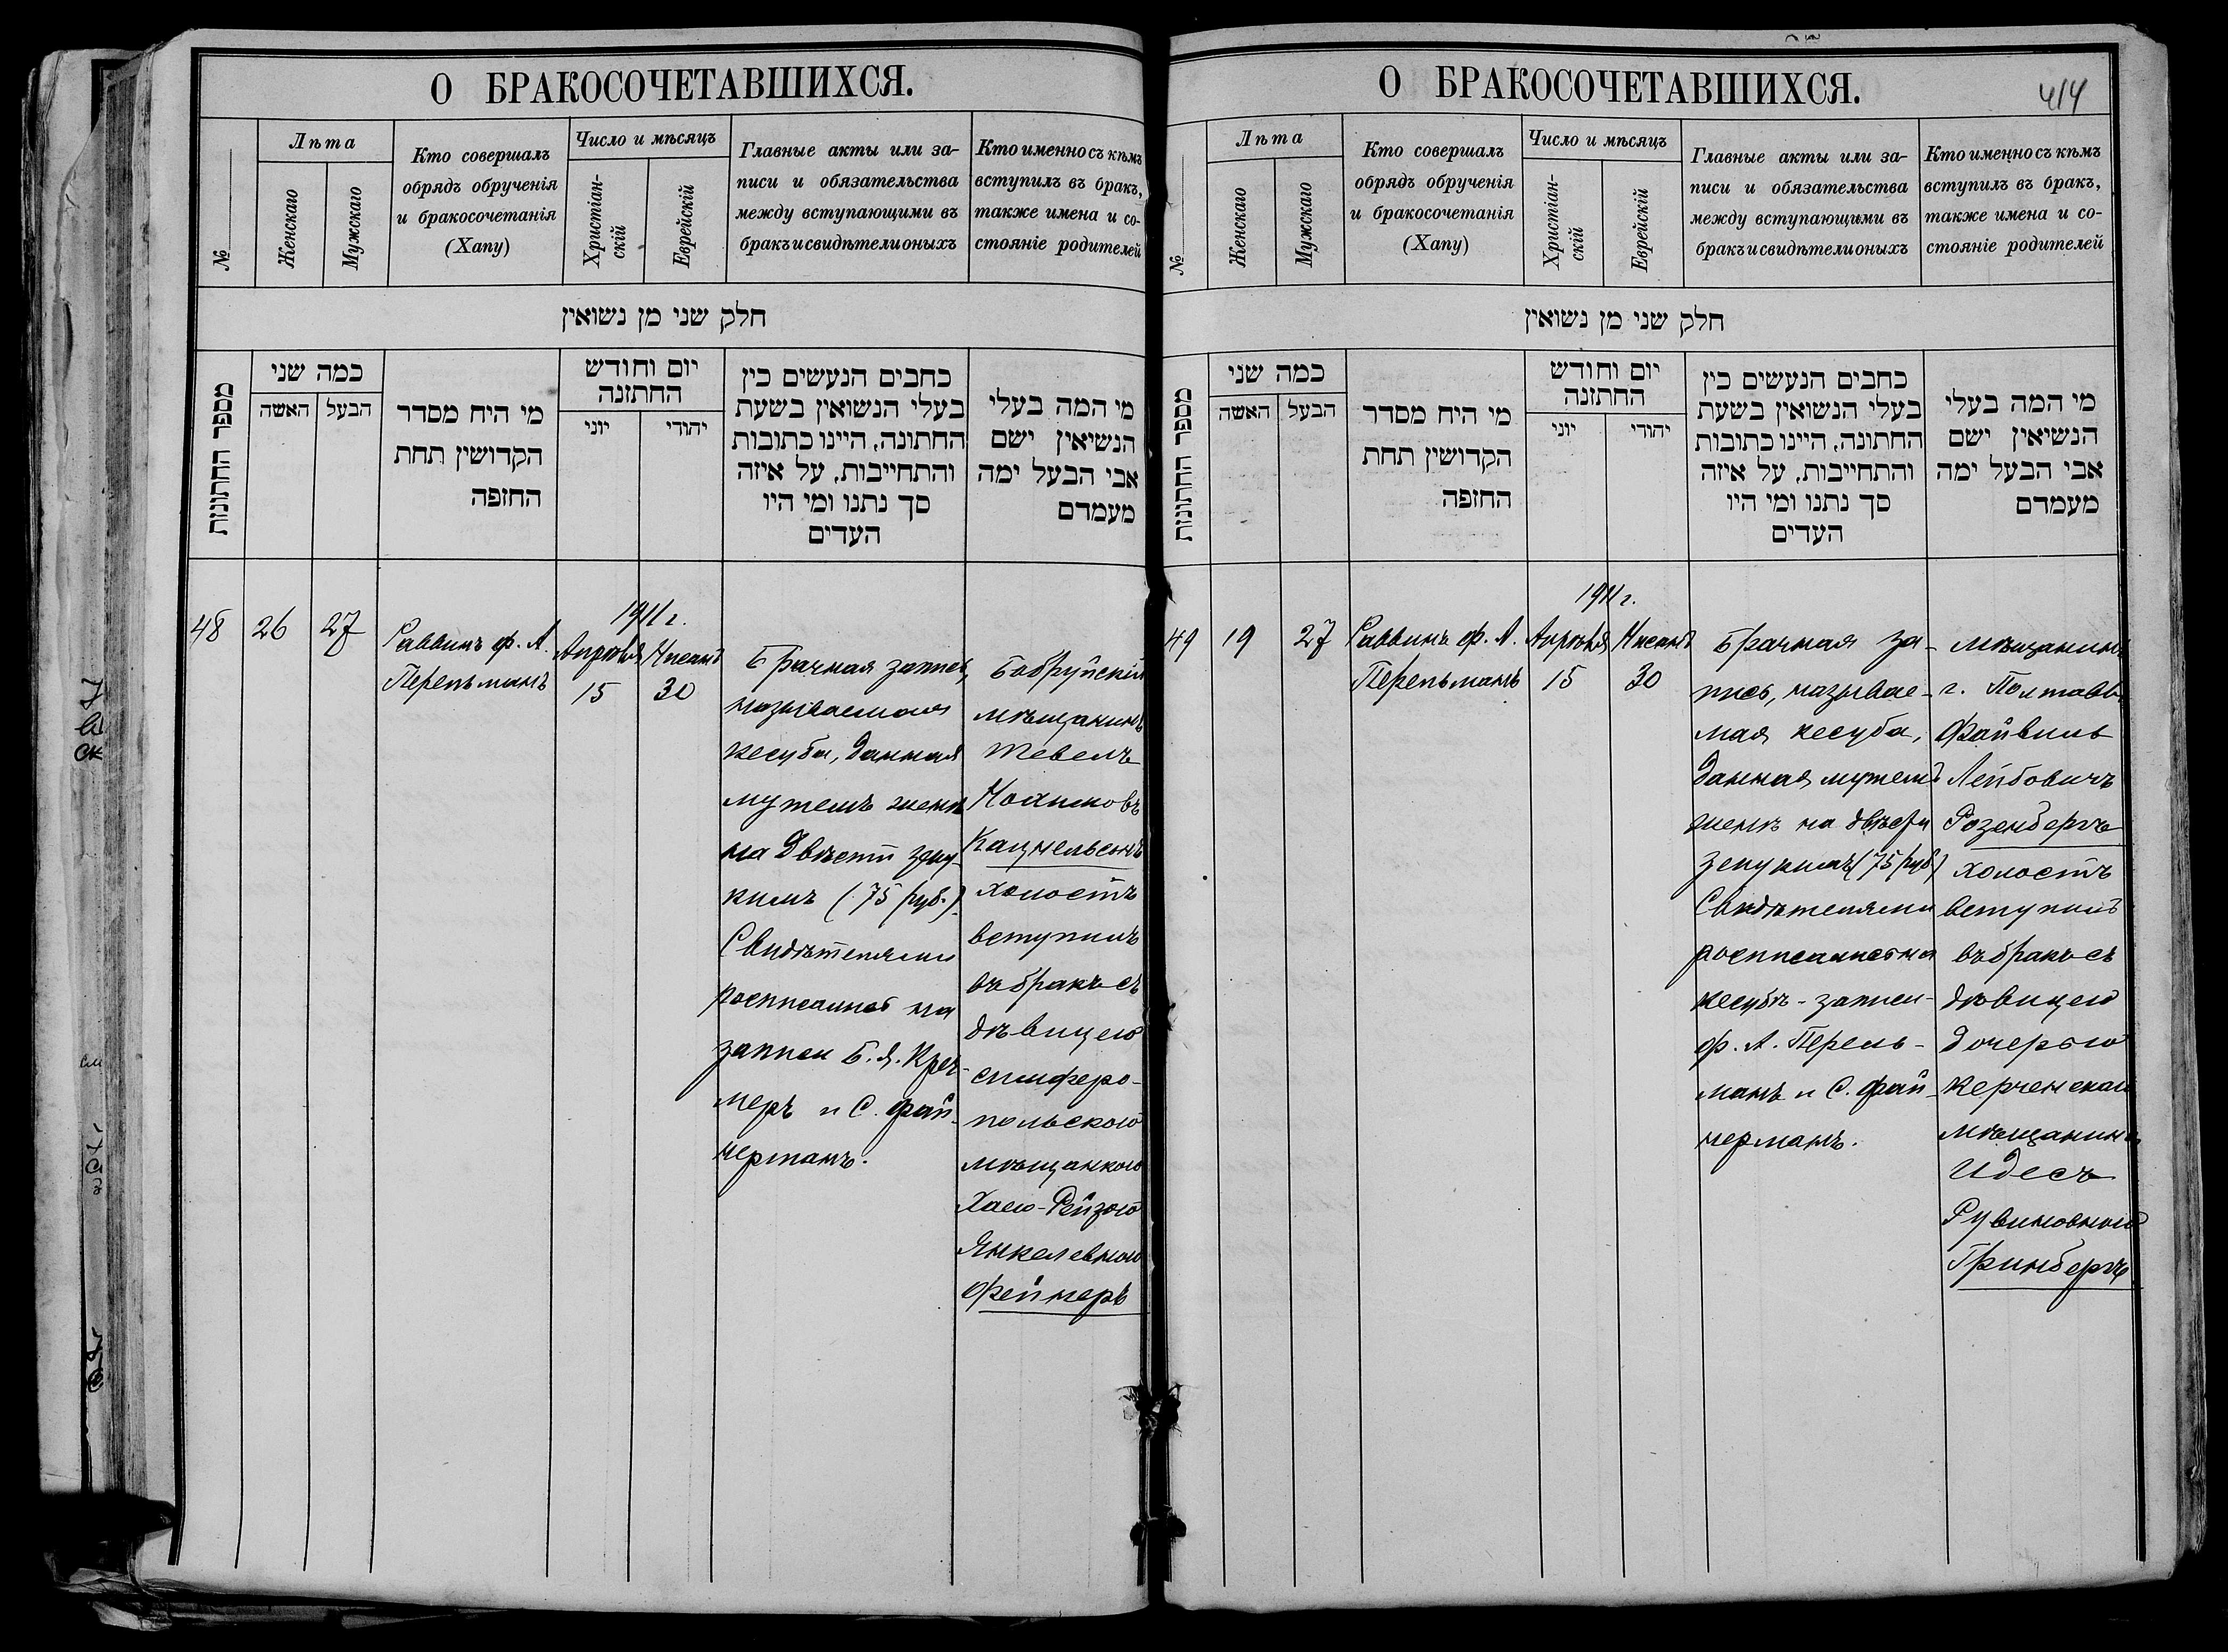 О БРАКОСОЧЕТАВШИХСЯ.
№
Лѣта
Женскаго
Мужскаго
Кто совершалъ
обрядъ обрученія
и бракосочетанія
(Хапу)
Число и мѣсяцъ
Христіан-
скій
Еврейскій
Главные акты или за-
писи и обязательства
между вступающими въ
бракъ и свидѣтели оныхъ
Кто именно съ кѣмъ
вступилъ въ бракъ,
также имена и со-
стояніе родителей
חלק שני מן נשואין
מספר החתונות
כמה שני
האשה
הבעל
מי היח מסדר
הקדושין תחת
החופה
יום וחודש
החתונה
יוני
יהודי
כחבים הנעשים כין
בעלי הנשואין בשעת
החתונה, היינו כתובות
והתחייבות, על איזה
סך נתנו ומי היו
העדים
מי המה בעלי
הנשיאין ישם
אבי הבעל ימה
מעמדם
48
26
27
Раввинъ ф. А.
Перельманъ
1911 г.
Апрѣля
15
Нисанъ
30
Брачная запись,
называемая
кесуба, данная
мужемъ женѣ
на двѣсти зеку-
кимъ (75 руб.).
Свидѣтелями
росписались на
записи Б. Я. Крей-
меръ и С. Фай-
нерманъ.
Бобруйскій
мѣщанинъ
Тевель
Кацнельсонъ
холостъ
вступилъ
въ бракъ съ
дѣвицею
симферо-
польскою
мѣщанкою
Хаею-Рейзою
Янкелевною
Фейнеръ
О БРАКОСОЧЕТАВШИХСЯ.
414
№
Лѣта
Женскаго
Мужскаго
Кто совершалъ
обрядъ обрученія
и бракосочетанія
(Хапу)
Число и мѣсяцъ
Христіан-
скій
Еврейскій
Главные акты или за-
писи и обязательства
между вступающими въ
бракъ и свидѣтели оныхъ
Кто именно съ кѣмъ
вступилъ въ бракъ,
также имена и со-
стояніе родителей
חלק שני מן נשואין
מספר החתונות
כמה שני
האשה
הבעל
מי היח מסדר
הקדושין תחת
החופה
יום וחודש
החתונה
יוני
יהודי
כחבים הנעשים כין
בעלי הנשואין בשעת
החתונה, היינו כתובות
והתחייבות, על איזה
סך נתנו ומי היו
העדים
מי המה בעלי
הנשיאין ישם
אבי הבעל ימה
מעמדם
49
19
27
Раввинъ ф. А.
Перельманъ
1911 г.
Апрѣля
15
Нисанъ
30
Брачная за-
пись, называе-
мая кесуба,
данная мужемъ
женѣ на двѣсти
зекукимъ (75 руб.)
Свидѣтелями
росписались на
кесубѣ-записи
ф. А. Перель-
манъ и С. Фай-
нерманъ.
Мѣщанинъ
г. Полтавы
Файвиль
Лейбовичъ
Розенбергъ
холостъ
вступилъ
въ бракъ съ
дѣвицею
дочерью
керченскаго
мѣщанина
Идесъ
Рувиновною
Гринбергъ